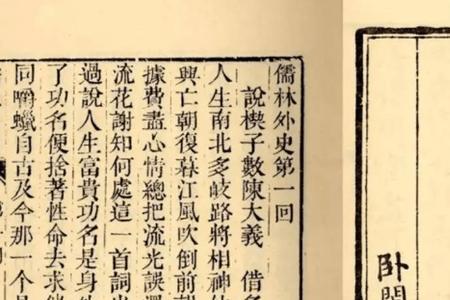 儒林外史第一回
說楔子敷陳大義　借名
人生南北多岐路將相神
興亡朝復暮江風吹倒前朝
據費盡心情總把流光誤
流花謝知何處這一首詞也
過說人生富貴功名是身外
了功名便捨著性命去求他
同嚼蠟自古及今那一个是
卧閒